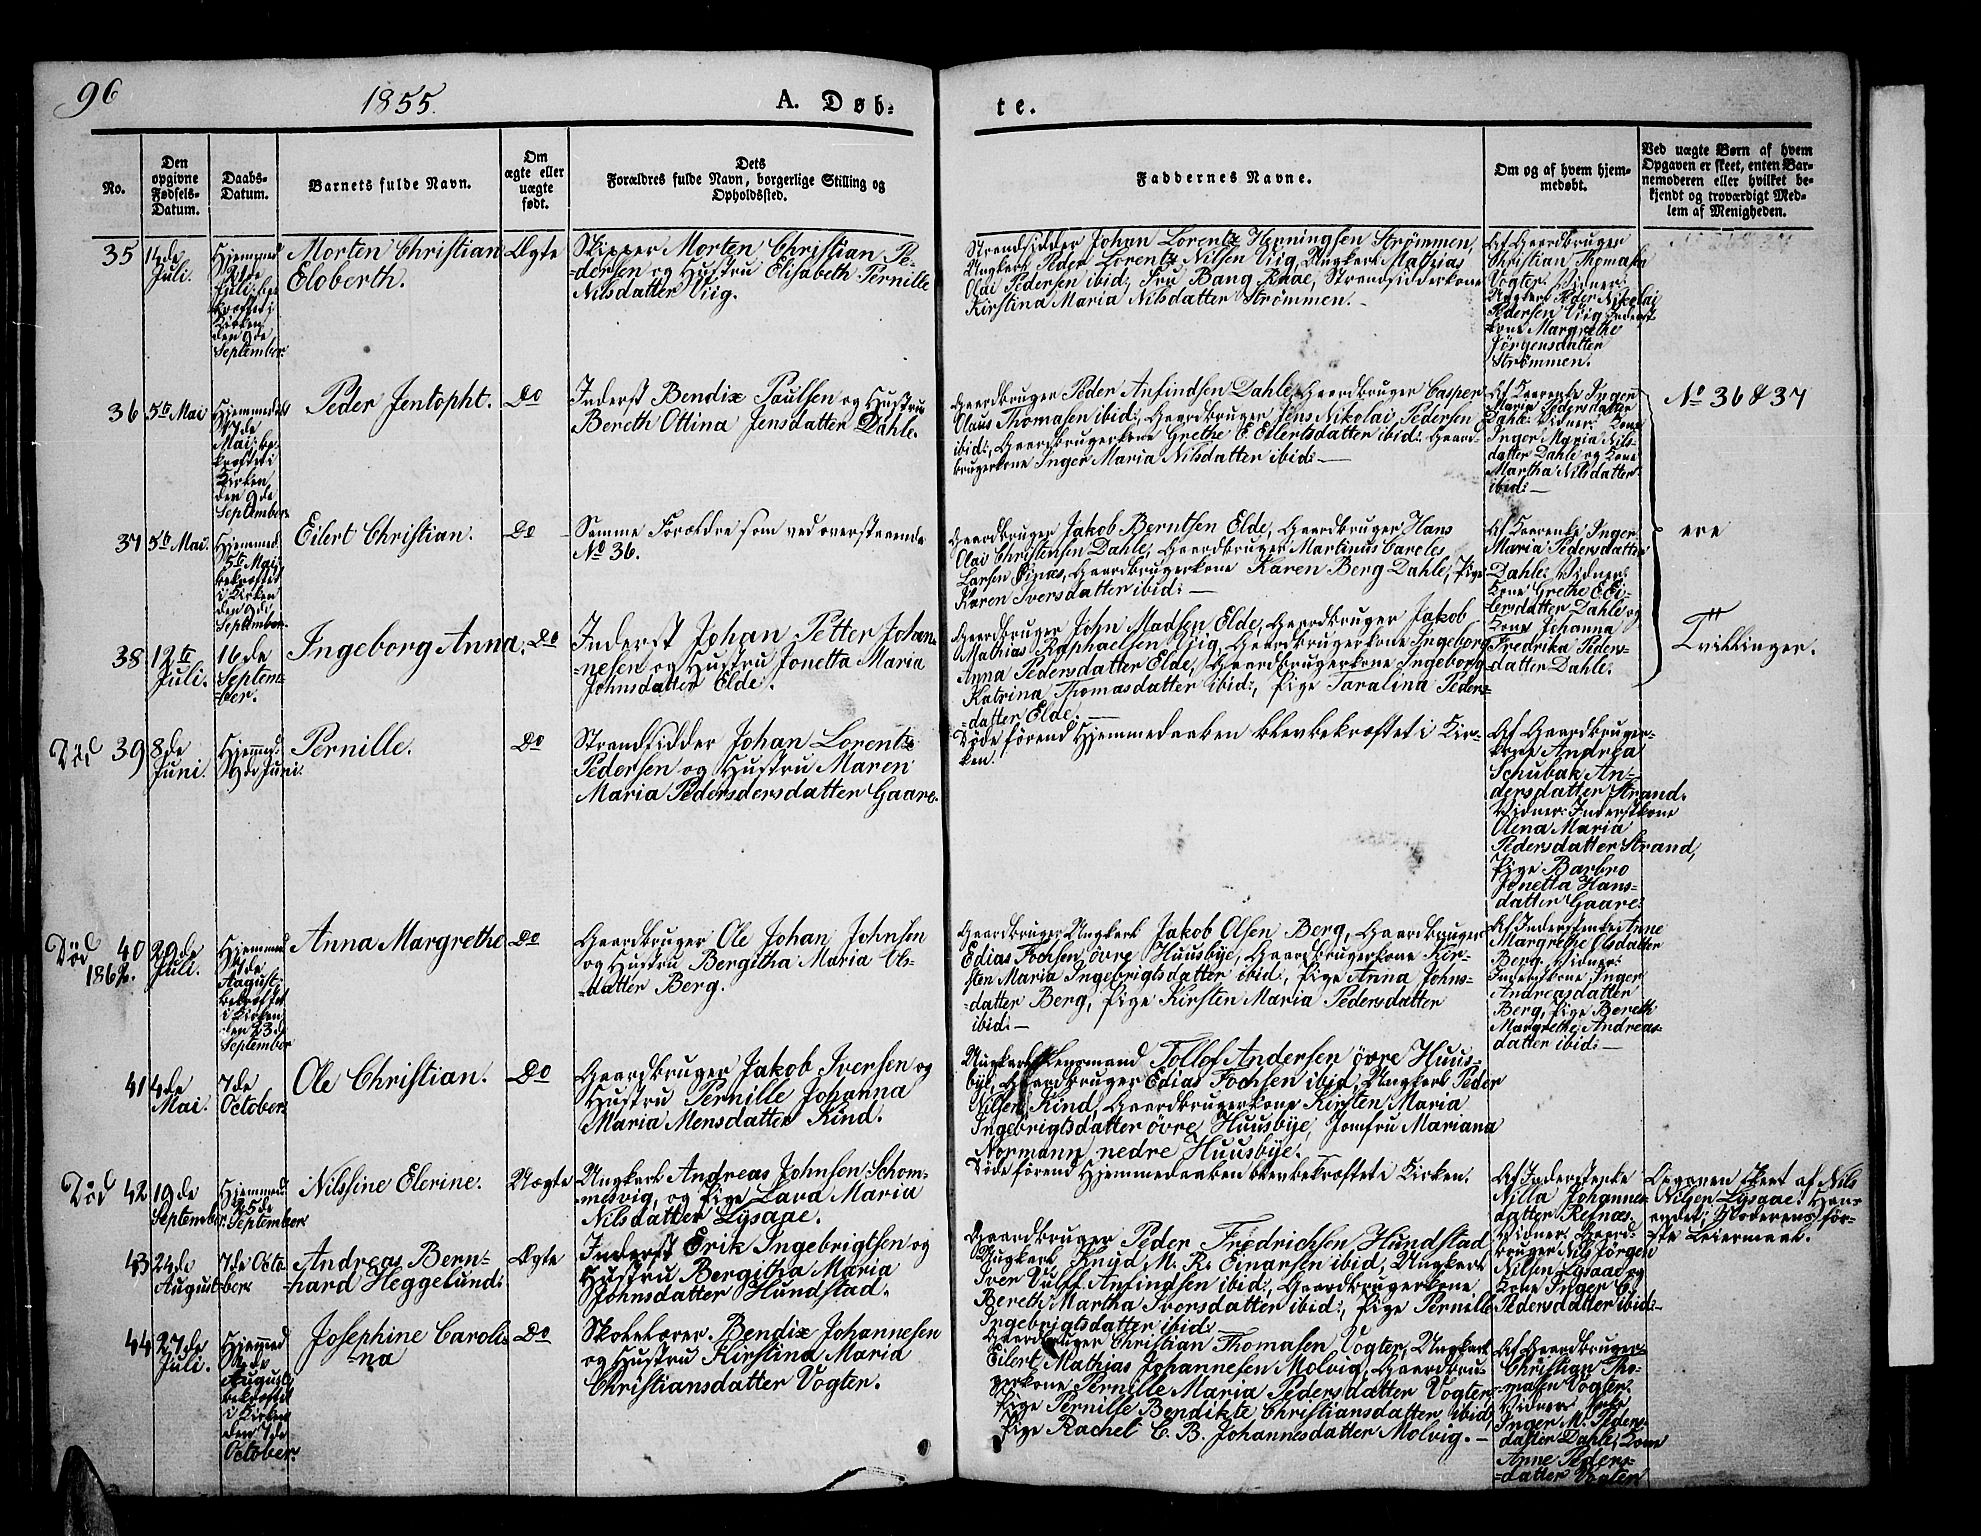 96
1855.
A. Døb-
te.
No.
Den
opgivne
Fødsels-
Datum.
Daabs-
Datum.
Barnets fulde Navn.
Om
ægte eller
uægte
født.
Dets
Forældres fulde Navn, borgerlige Stilling og
Opholdssted.
Faddernes Navne.
Om og af hvem hjem-
medøbt.
Ved uægte Børn af hvem
Opgaven er skeet, enten Bar-
nemoderen eller hvilket be-
kjendt og troværdigt Med-
lem af Menigheden.
35
Juli.
Hjemmed
Juli: be-
kræftet i
Kirken
den 9de
September.
Morten Christian
Eloberth.
Ægte
Skipper Morten Christian Pe-
-dersen og Hustru Elisabeth Pernille
Nilsdatter Viig.
Strandsidder Johan Lorentz Henningsen Strømmen,
Ungkarl Peder Lorentz Nilsen Viig, Ungkarl Mathias
Olai Pedersen ibid:, Fru Bang Knae, Strandsidderkone
Kirstina Maria Nilsdatter Strømmen.-
Af Gaardbruger
Christian Thomasen
Vogter. Vidner:
Ungkarl Peder Nikolai
Pedersen Viig, Inderst-
kone Margrethe
Jørgensdatter
Strømmen.
36
5te Mai
Hjemmedøbt
Mai: be-
kræftet i
Kirken
den 9de
September.
Peder Jentopht.
Do
Inderst Bendix Paulsen og Hustru
Bereth Ottina Jensdatter Dahle.
Gaardbruger Peder Anfindsen Dahle, Gaardbruger Casper
Olaus Thomasen ibid:, Gaardbruger Jens Nikolai Pedersen
ibid:, Gaardbrugerkone Grethe E. Eilertsdatter ibid: Gaard-
brugerkone Inger Maria Nilsdatter ibid:-
Af Kaarenke Inger
Maria Pedersdatter
Dahle. Vidner: Kone
Inger Maria Nils-
datter Dahle og Kone
Martha Nilsdatter
ibid:-
No 36 & 37
37
5te Mai.
Hjemmed
5te Mai
bekræftet
i Kirken
den 9de
September.
Eilert Christian.
Do
Samme Forældre som ved overstaaende
No 36.
Gaardbruger Jakob Berntsen Elde, Gaardbruger Hans
Olai Christensen Dahle, Gaardbruger Martinus Careles
Larsen Finæs, Gaardbrugerkone Karen Berg Dahle, Pige
Karen Iversdatter ibid:-
Af Kaarenke Inger
Maria Pedersdatter
Dahle. Vidner:
Kone Grethe E. Ei-
lersdatter Dahle og
Kone Johanna
Fredrika Peders-
datter Dahle.
ere
Tvillinger.
38
12te
Juli.
16de
Septem-
ber.
Ingeborg Anna.
Do
Inderst Johan Petter Johan-
-nesen og Hustru Jonetta Maria
Johnsdatter Elde.
Gaardbruger John Madsen Elde, Gaardbruger Jakob
Mathias Raphaelsen Qvig, Gaardbrugerkone Ingeborg
Anna Pedersdatter Elde, Gaardbrugerkone Ingeborg
Katrina Thomasdatter ibid:, Pige Taralina Peders-
-datter Elde.-
Død
39
8de
Juni.
Hjemmed.
9de Juni.
Pernille.
Do
Strandsidder Johan Lorentz
Pedersen og Hustru Maren
Maria Pedersdersdatter Gaare.
Døde førend Hjemmedaaben blev bekræftet i Kir-
ken.
Af Gaardbruger-
kone Andrea
Schubak An-
dersdatter Strand.
Vidner: Inderstkone
Olena Maria
Pedersdatter Strand,
Pige Barbro
Jonetta Hans-
datter Gaare.
Død
40
29de
Juli.
Hjemmed
August
bekræftet
i Kirken
den 23de
September
Anna Margrethe
Do
Gaardbruger Ole Johan Johnsen
og Hustru Bergitha Maria Ols-
-datter Berg.
Gaardbruger Ungkarl Jakob Olsen Berg, Gaardbruger
Edias Fochsen øvre Huusbye, Gaardbrugerkone Kir-
sten Maria Ingebrigtsdatter ibid, Pige Anna Johns-
-datter Berg, Pige Kirsten Maria Pedersdatter
ibid:-
Af Inderstenke Anne
Margrethe Olsdatter
Berg. Vidner:
Inderstkone Inger
Andreasdatter
Berg, Pige Bereth
Margrethe Andreas-
datter ibid:-
41
4de
Mai.
7de
October.
Ole Christian.
Do
Gaardbruger Jakob Iversen og
Hustru Pernille Johanna
Maria Mensdatter Kind.
Ungkarl Lensmand Tollof Andersen øvre Huus-
bye, Gaardbruger Edias Fochsen ibid, Ungkarl Peder
Nilsen Kind, Gaardbrugerkone Kirsten Maria
Ingebrigtsdatter øvre Huusbye, Jomfru Mariana
Normann nedre Huusbye.
Død
42
19de
September
Hjemmed
25de
September.
Nilsine Elerine.
Uægte
Ungkarl Andreas Johnsen Schom-
-mesvig, og Pige Lava Maria
Nilsdatter Lysaae.
Døde førend Hjemmedaaben blev bekræftet i Kirken.
Af Inderstenke
Nilla Johannes-
datter Refnæs.
Vidner: Gaard-
bruger Nils Jørgen
Nilsen Lysaae og
Kone Inger C.
Pedersdatter ibid:-
Opgaven skeet af Nils
Nilsen Lysaae.
Moderens før-
ste Leiermaal.
43
24de
August
7de Octo-
ber.
Andreas Bern-
-hard Heggelund.
Ægte
Inderst Erik Ingebrigtsen og
Hustru Bergitha Maria
Johnsdatter Hundstad.
Gaardbruger Peder Fredrichsen Hundstad
Ungkarl Knud M. R. Einarsen ibid, Ungkarl
Iver Vulff Anfindsen ibid:, Gaardbrugerkone
Bereth Martha Iversdatter ibid:, Pige Pernille
Ingebrigtsdatter ibid:-
44
27de
Juli.
Hjemmed
August
bekræftet
i Kirken
den 7de
October.
Josephine Caroli-
-na
Do
Skolelærer Bendix Johannesen
og Hustru Kirstina Maria
Christiansdatter Vogter.
Gaardbruger Christian Thomasen Vogter, Ungkarl
Eilert Mathias Johannesen Molvig, Gaardbru-
gerkone Pernille Maria Pedersdatter Vogter
Pige Pernille Bendikte Christiansdatter ibid,
Pige Rachel C. B. Johannesdatter Molvig.-
Af Gaardbruger
Christian Tho-
masen Vogter.
Vidner: Enke
Inger M. Peders-
datter Dahle, Kone
Anne Peders-
-datter Vogter